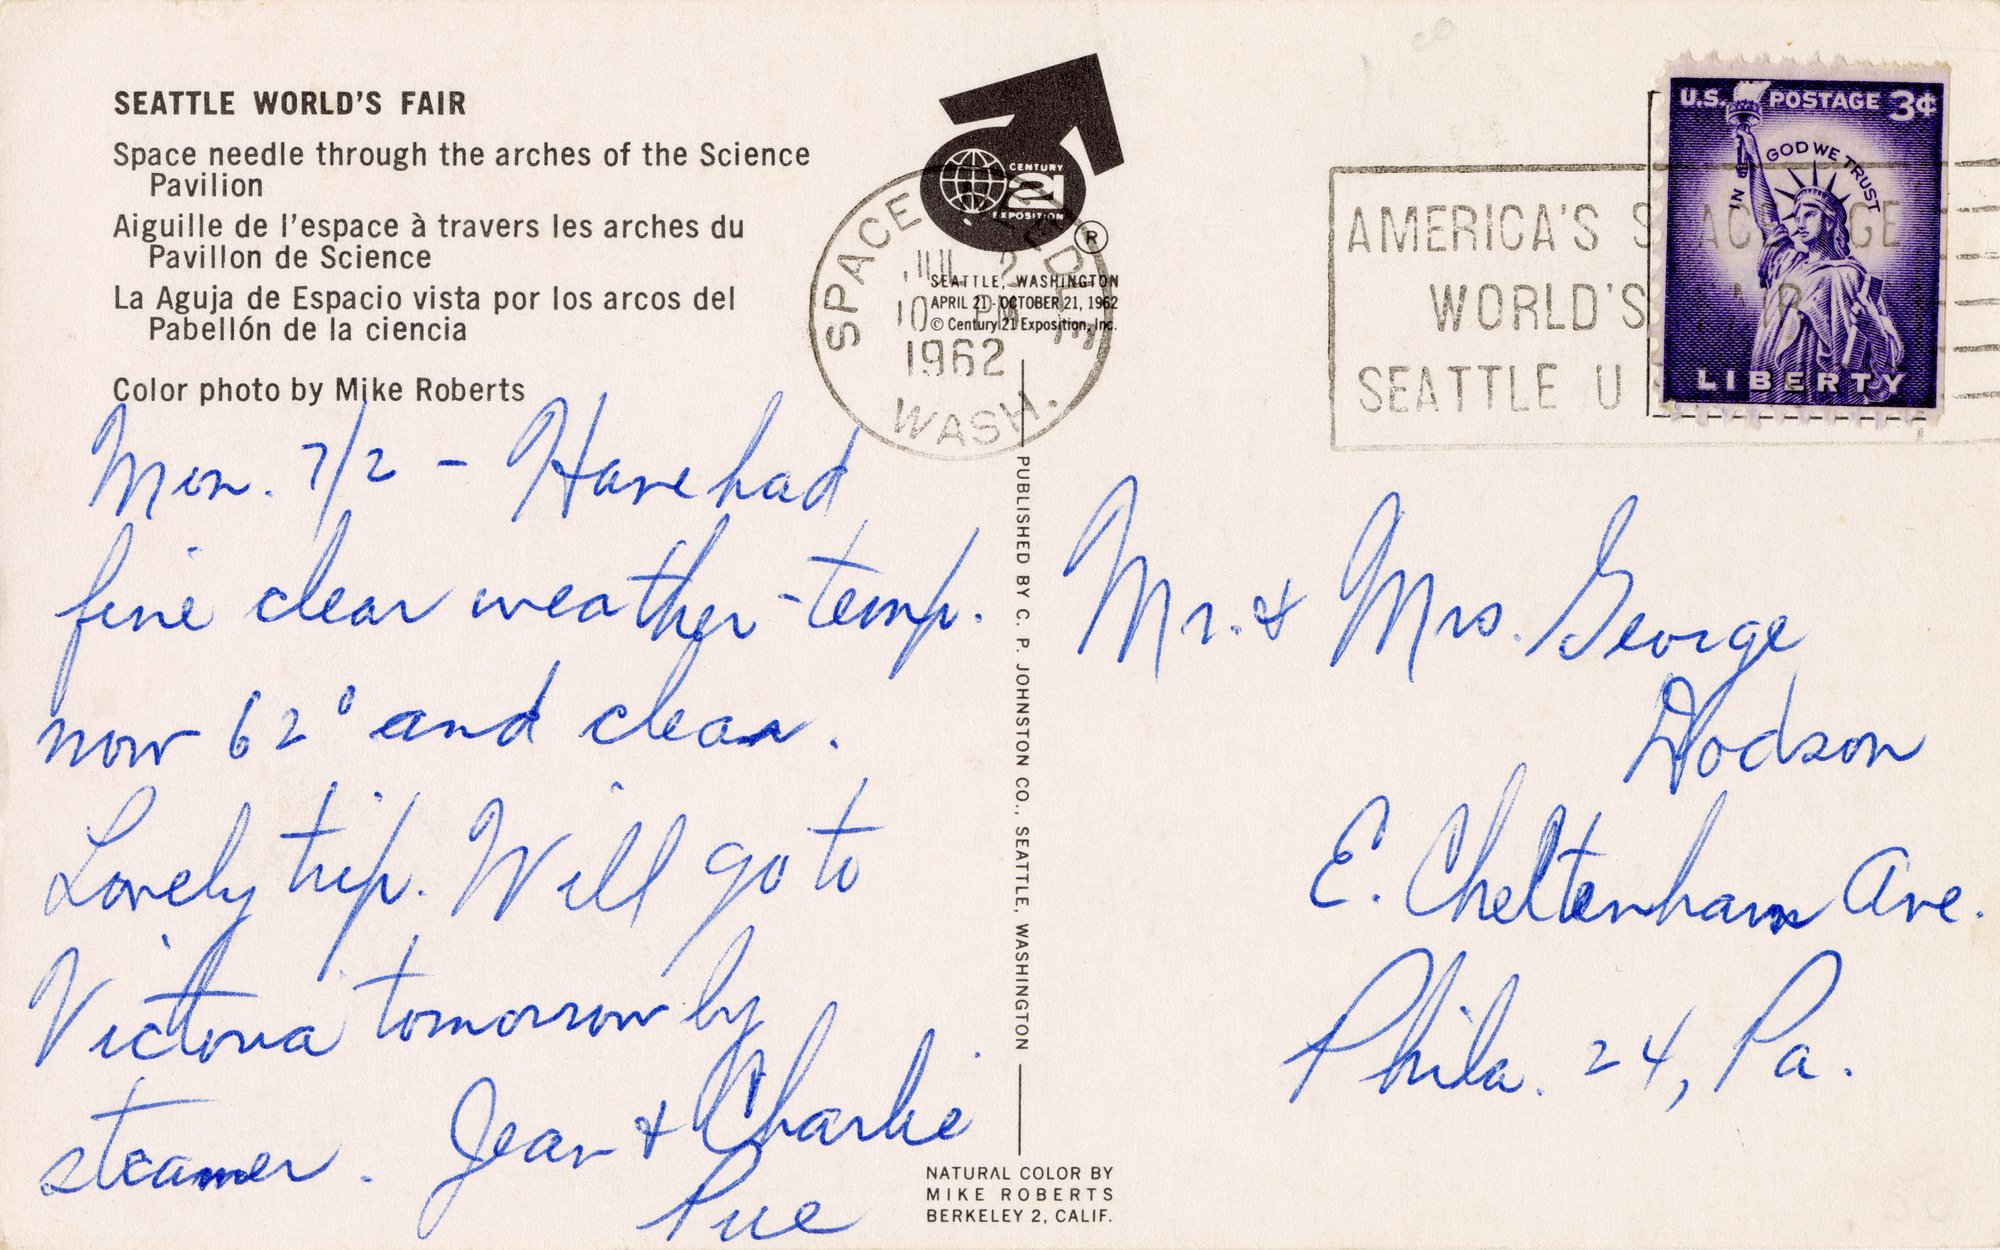 SEATTLE WORLD'S FAIR
Space needle through the arches of the Science
Pavilion
Aiguille de l'espace à travers les arches du
Pavillon de Science
La Aguja de Espacio vista por los arcos del
Pabellón de la ciencia
Color photo by Mike Roberts
Mon. 7/2 – Have had
fine clear weather – temp.
now 62° and clear.
Lovely trip. Will go to
Victoria tomorrow by
steamer. Jean & Charlie
Pue
CENTURY
21
EXPOSITION
®
SEATTLE, WASHINGTON
APRIL 21-OCTOBER 21, 1962
© Century 21 Exposition, Inc.
SPACE NEEDLE
JUL 2
10 PM
1962
WASH.
PUBLISHED BY C. P. JOHNSTON CO., SEATTLE, WASHINGTON
NATURAL COLOR BY
MIKE ROBERTS
BERKELEY 2, CALIF.
AMERICA'S SPACE AGE
WORLD'S FAIR
SEATTLE U
U.S. POSTAGE 3¢
IN GOD WE TRUST
LIBERTY
Mr. & Mrs. George
Dodson
E. Cheltenham Ave.
Phila. 24, Pa.